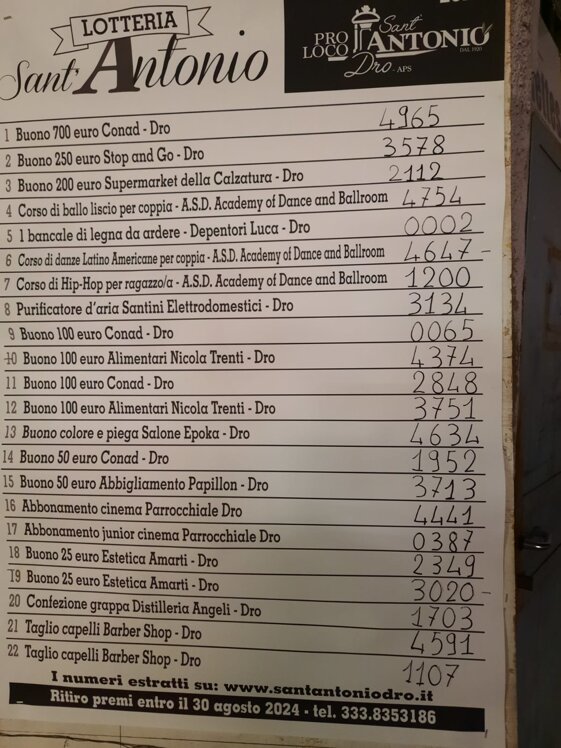 LOTTERIA
Sant'Antonio
PRO LOCO Sant'ANTONIO
DAL 1920
Dro - APS
1 Buono 700 euro Conad - Dro 4965
2 Buono 250 euro Stop and Go - Dro 3578
3 Buono 200 euro Supermarket della Calzatura - Dro 2112
4 Corso di ballo liscio per coppia - A.S.D. Academy of Dance and Ballroom 4754
5 1 bancale di legna da ardere - Depentori Luca - Dro 0002
6 Corso di danze Latino Americane per coppia - A.S.D. Academy of Dance and Ballroom 4647 -
7 Corso di Hip-Hop per ragazzo/a - A.S.D. Academy of Dance and Ballroom 1200
8 Purificatore d'aria Santini Elettrodomestici - Dro 3134
9 Buono 100 euro Conad - Dro 0065
10 Buono 100 euro Alimentari Nicola Trenti - Dro 4374
11 Buono 100 euro Conad - Dro 2848
12 Buono 100 euro Alimentari Nicola Trenti - Dro 3751
13 Buono colore e piega Salone Epoka - Dro 4634
14 Buono 50 euro Conad - Dro 1952
15 Buono 50 euro Abbigliamento Papillon - Dro 3713
16 Abbonamento cinema Parrocchiale Dro 4441
17 Abbonamento junior cinema Parrocchiale Dro 0387
18 Buono 25 euro Estetica Amarti - Dro 2349
19 Buono 25 euro Estetica Amarti - Dro 3020 -
20 Confezione grappa Distilleria Angeli - Dro 1703
21 Taglio capelli Barber Shop - Dro 4591
22 Taglio capelli Barber Shop - Dro 1107
I numeri estratti su: www.santantoniodro.it
Ritiro premi entro il 30 agosto 2024 - tel. 333.8353186